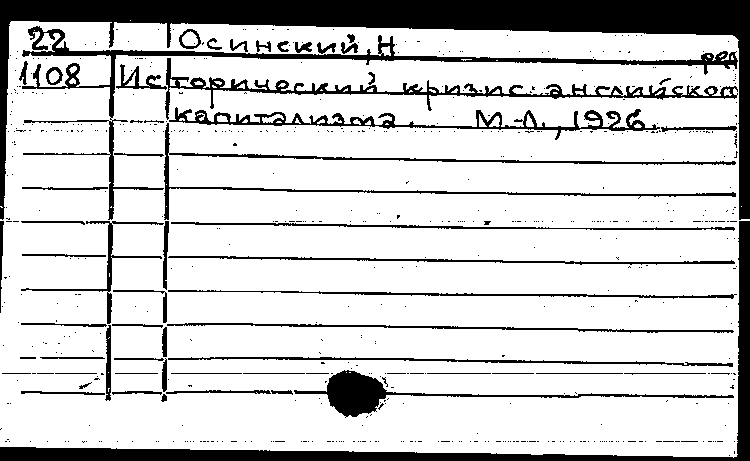 22 Осинский, Н ред
1108 Исторический кризис английского
капитализма. М.-Л., 1926.